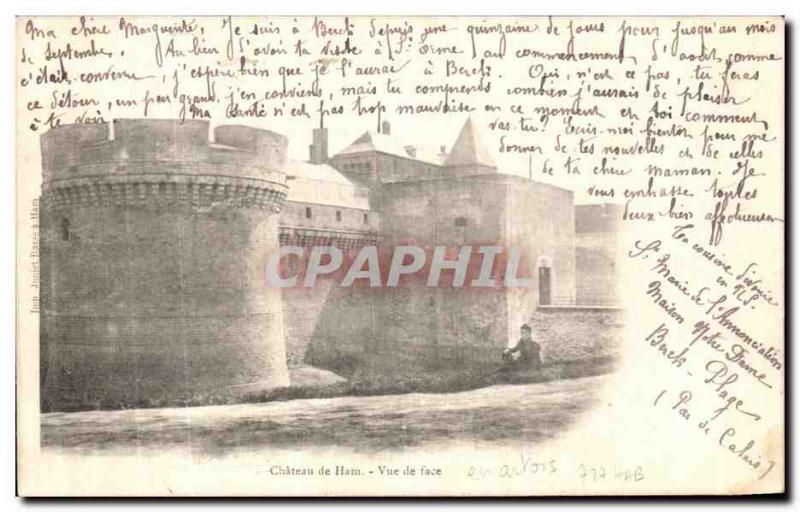 Ma chère Marguerite, Je suis à Berck depuis une quinzaine de jours pour jusqu'au mois
de septembre. Au lieu d'avoir ta visite à St Orme au commencement d'août, comme
c'était convenu, j'espère bien que je l'aurai à Berck. Oui, n'est ce pas, tu feras
ce détour, un peu grand, j'en conviens, mais tu comprends combien j'aurais de plaisir
à te voir. Ma santé n'est pas trop mauvaise en ce moment et toi comment
vas-tu? Ecris-moi bientôt pour me
donner de tes nouvelles et de celles
de ta chère maman. Je
vous embrasse toutes
deux bien affectueusement
Ta cousine
en N.S.
Sr Marie de l'Annonciation
Maison Notre Dame
Berck-Plage
(Pas de Calais)
Imp. Juniet Rasse à Ham
CPAPHIL
Château de Ham. - Vue de face
en artois 727 HAB